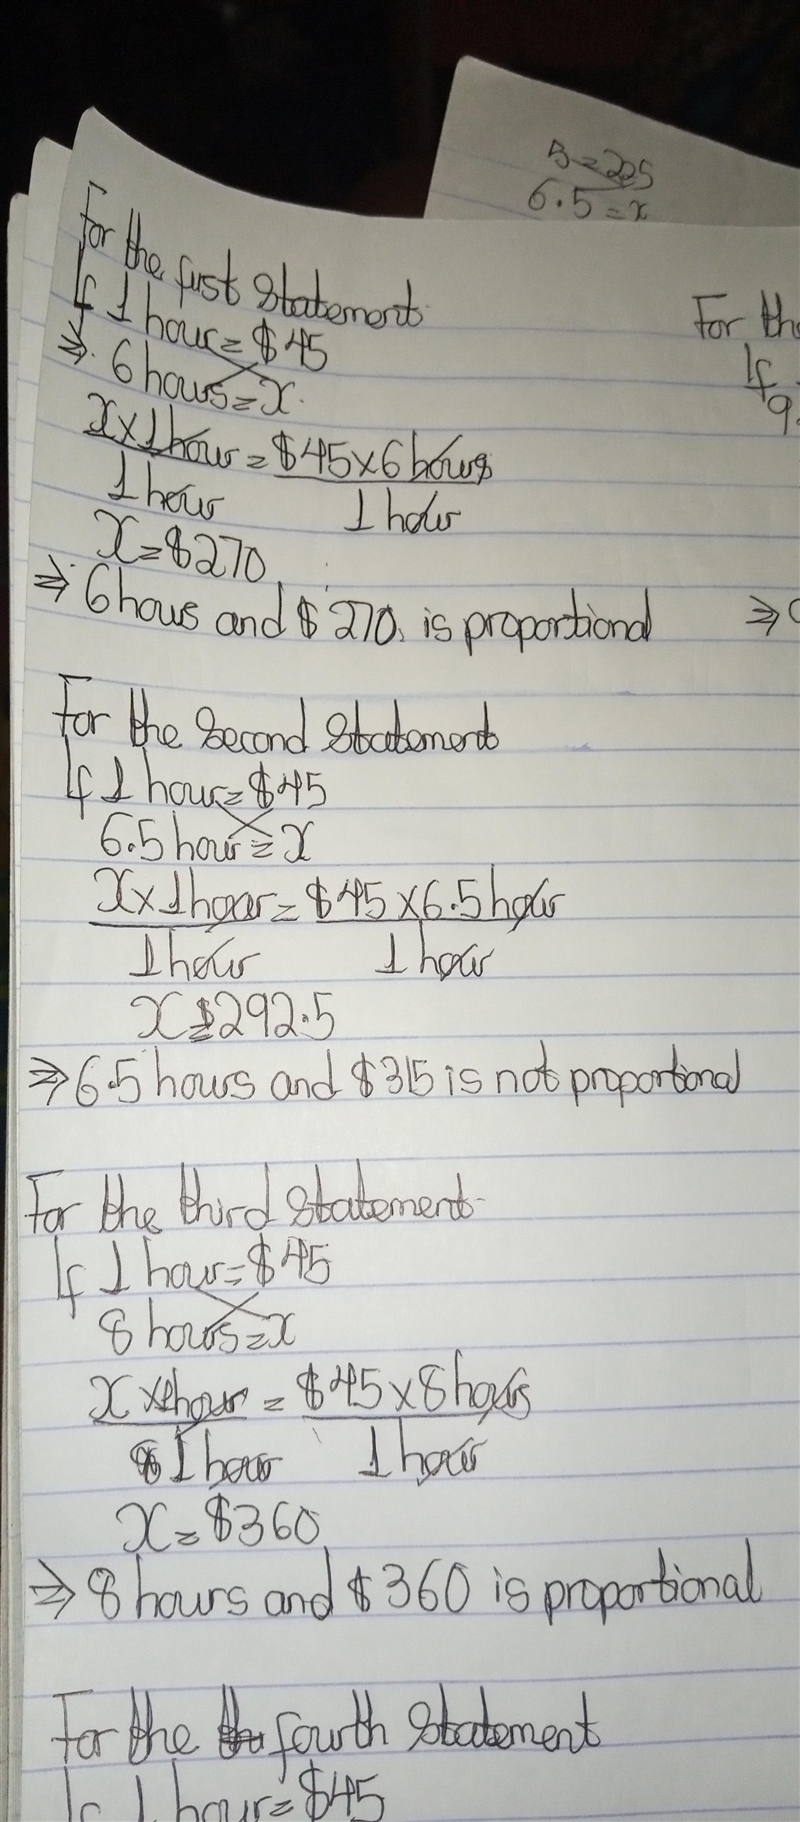 5=225
6.5=x
For the first statement
If 1 hour=$45
⇒ 6 hours=x
x×1hour=$45×6hours
1hour 1hour
x=$270
⇒ 6hous and $270. is proportional
For the second statement
If 1 hour=$45
6.5hour=x
x×1hour=$45×6.5hour
1hour 1hour
x=$292.5
⇒ 6.5 hours and $315 is not proportional
For the third statement
If 1 hour=$45
8 hours=x
x×1hour=$45×8hours
1hour 1hour
x=$360
⇒ 8 hours and $360 is proportional
For the fourth statement
If 1 hour=$45
For the
If
9.
⇒